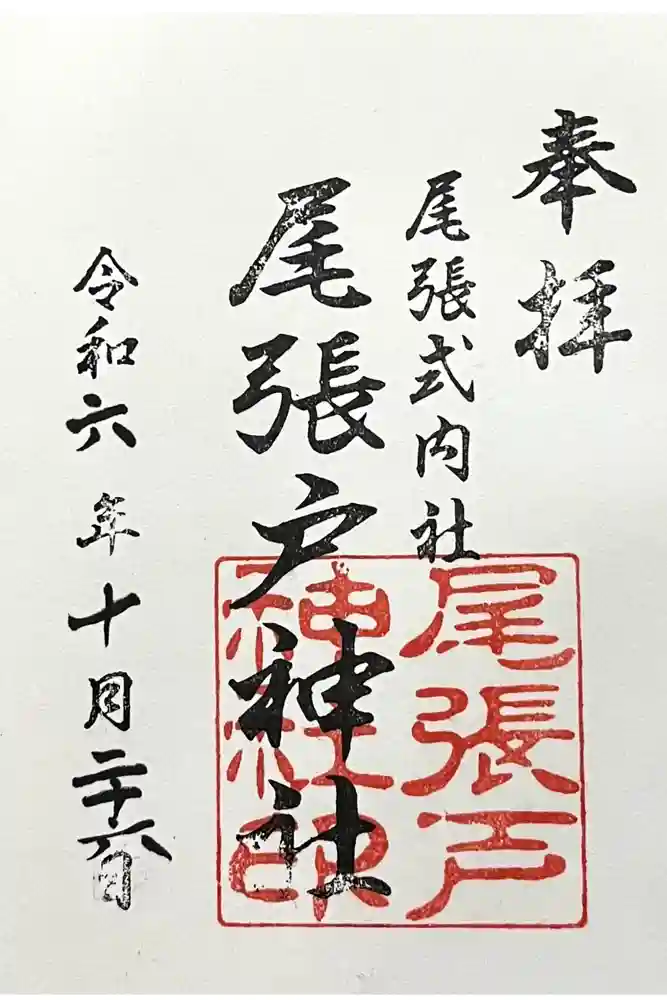 奉拝
尾張式内社
尾張戸神社
尾張戸
神社印
令和六年十月二十六日